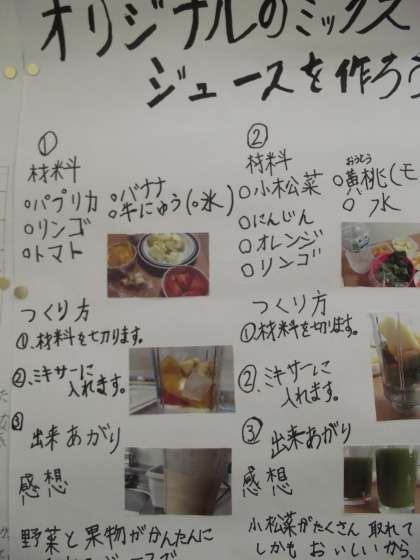 オリジナルのミックス
ジュースを作ろう
①
材料
○パプリカ ○バナナ
○リンゴ ○牛にゅう(○氷)
○トマト
つくり方
①、材料を切ります。
②、ミキサーに
入れます。
③ 出来あがり
感想
野菜と果物がかんたんに
②
材料
○小松菜 ○黄桃(モ
おうとう
○にんじん ○水
○オレンジ
○リンゴ
つくり方
①、材料を切ります。
②、ミキサーに
入れます。
③ 出来あがり
感想
小松菜がたくさん取れて
しかもおいしいから